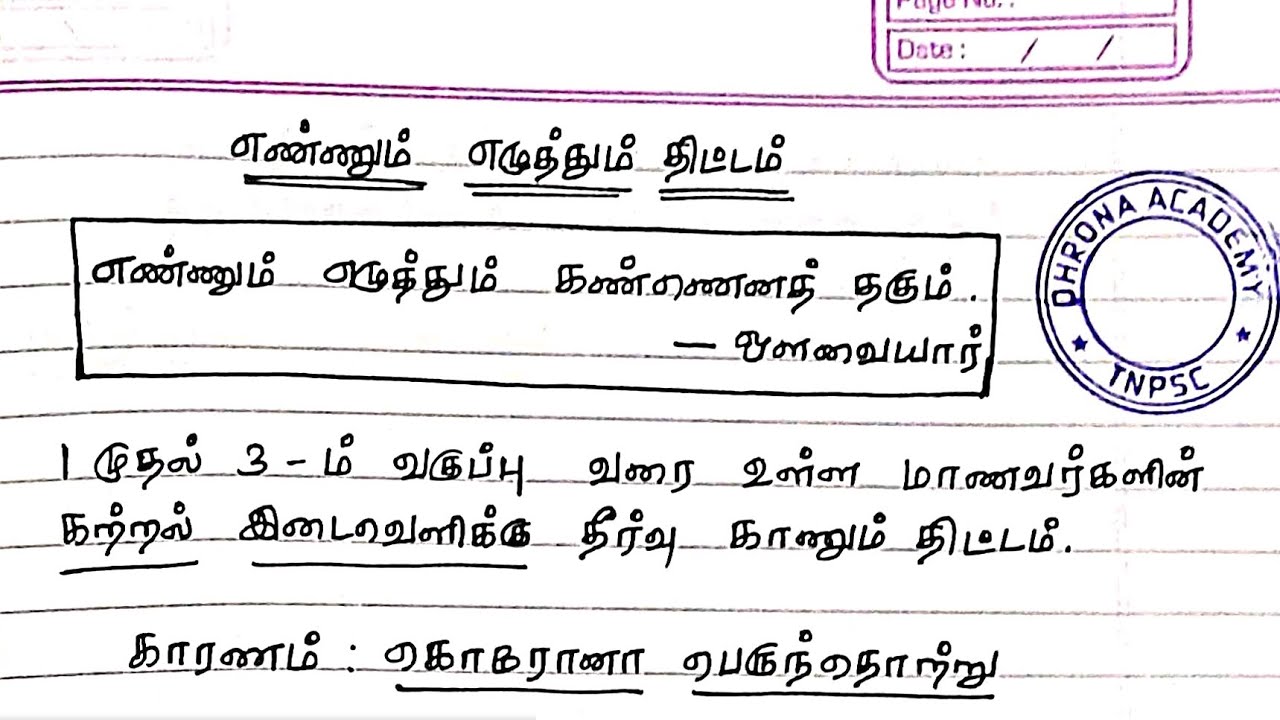 Page No. :
Date : / /
எண்ணும் எழுத்தும் திட்டம்
எண்ணும் எழுத்தும் கண்ணெனத் தகும்.
— ஔவையார்
DHRONA ACADEMY
★ TNPSC ★
1 முதல் 3-ம் வகுப்பு வரை உள்ள மாணவர்களின்
கற்றல் இடைவெளிக்கு தீர்வு காணும் திட்டம்.
காரணம் : கொரோனா பெருந்தொற்று